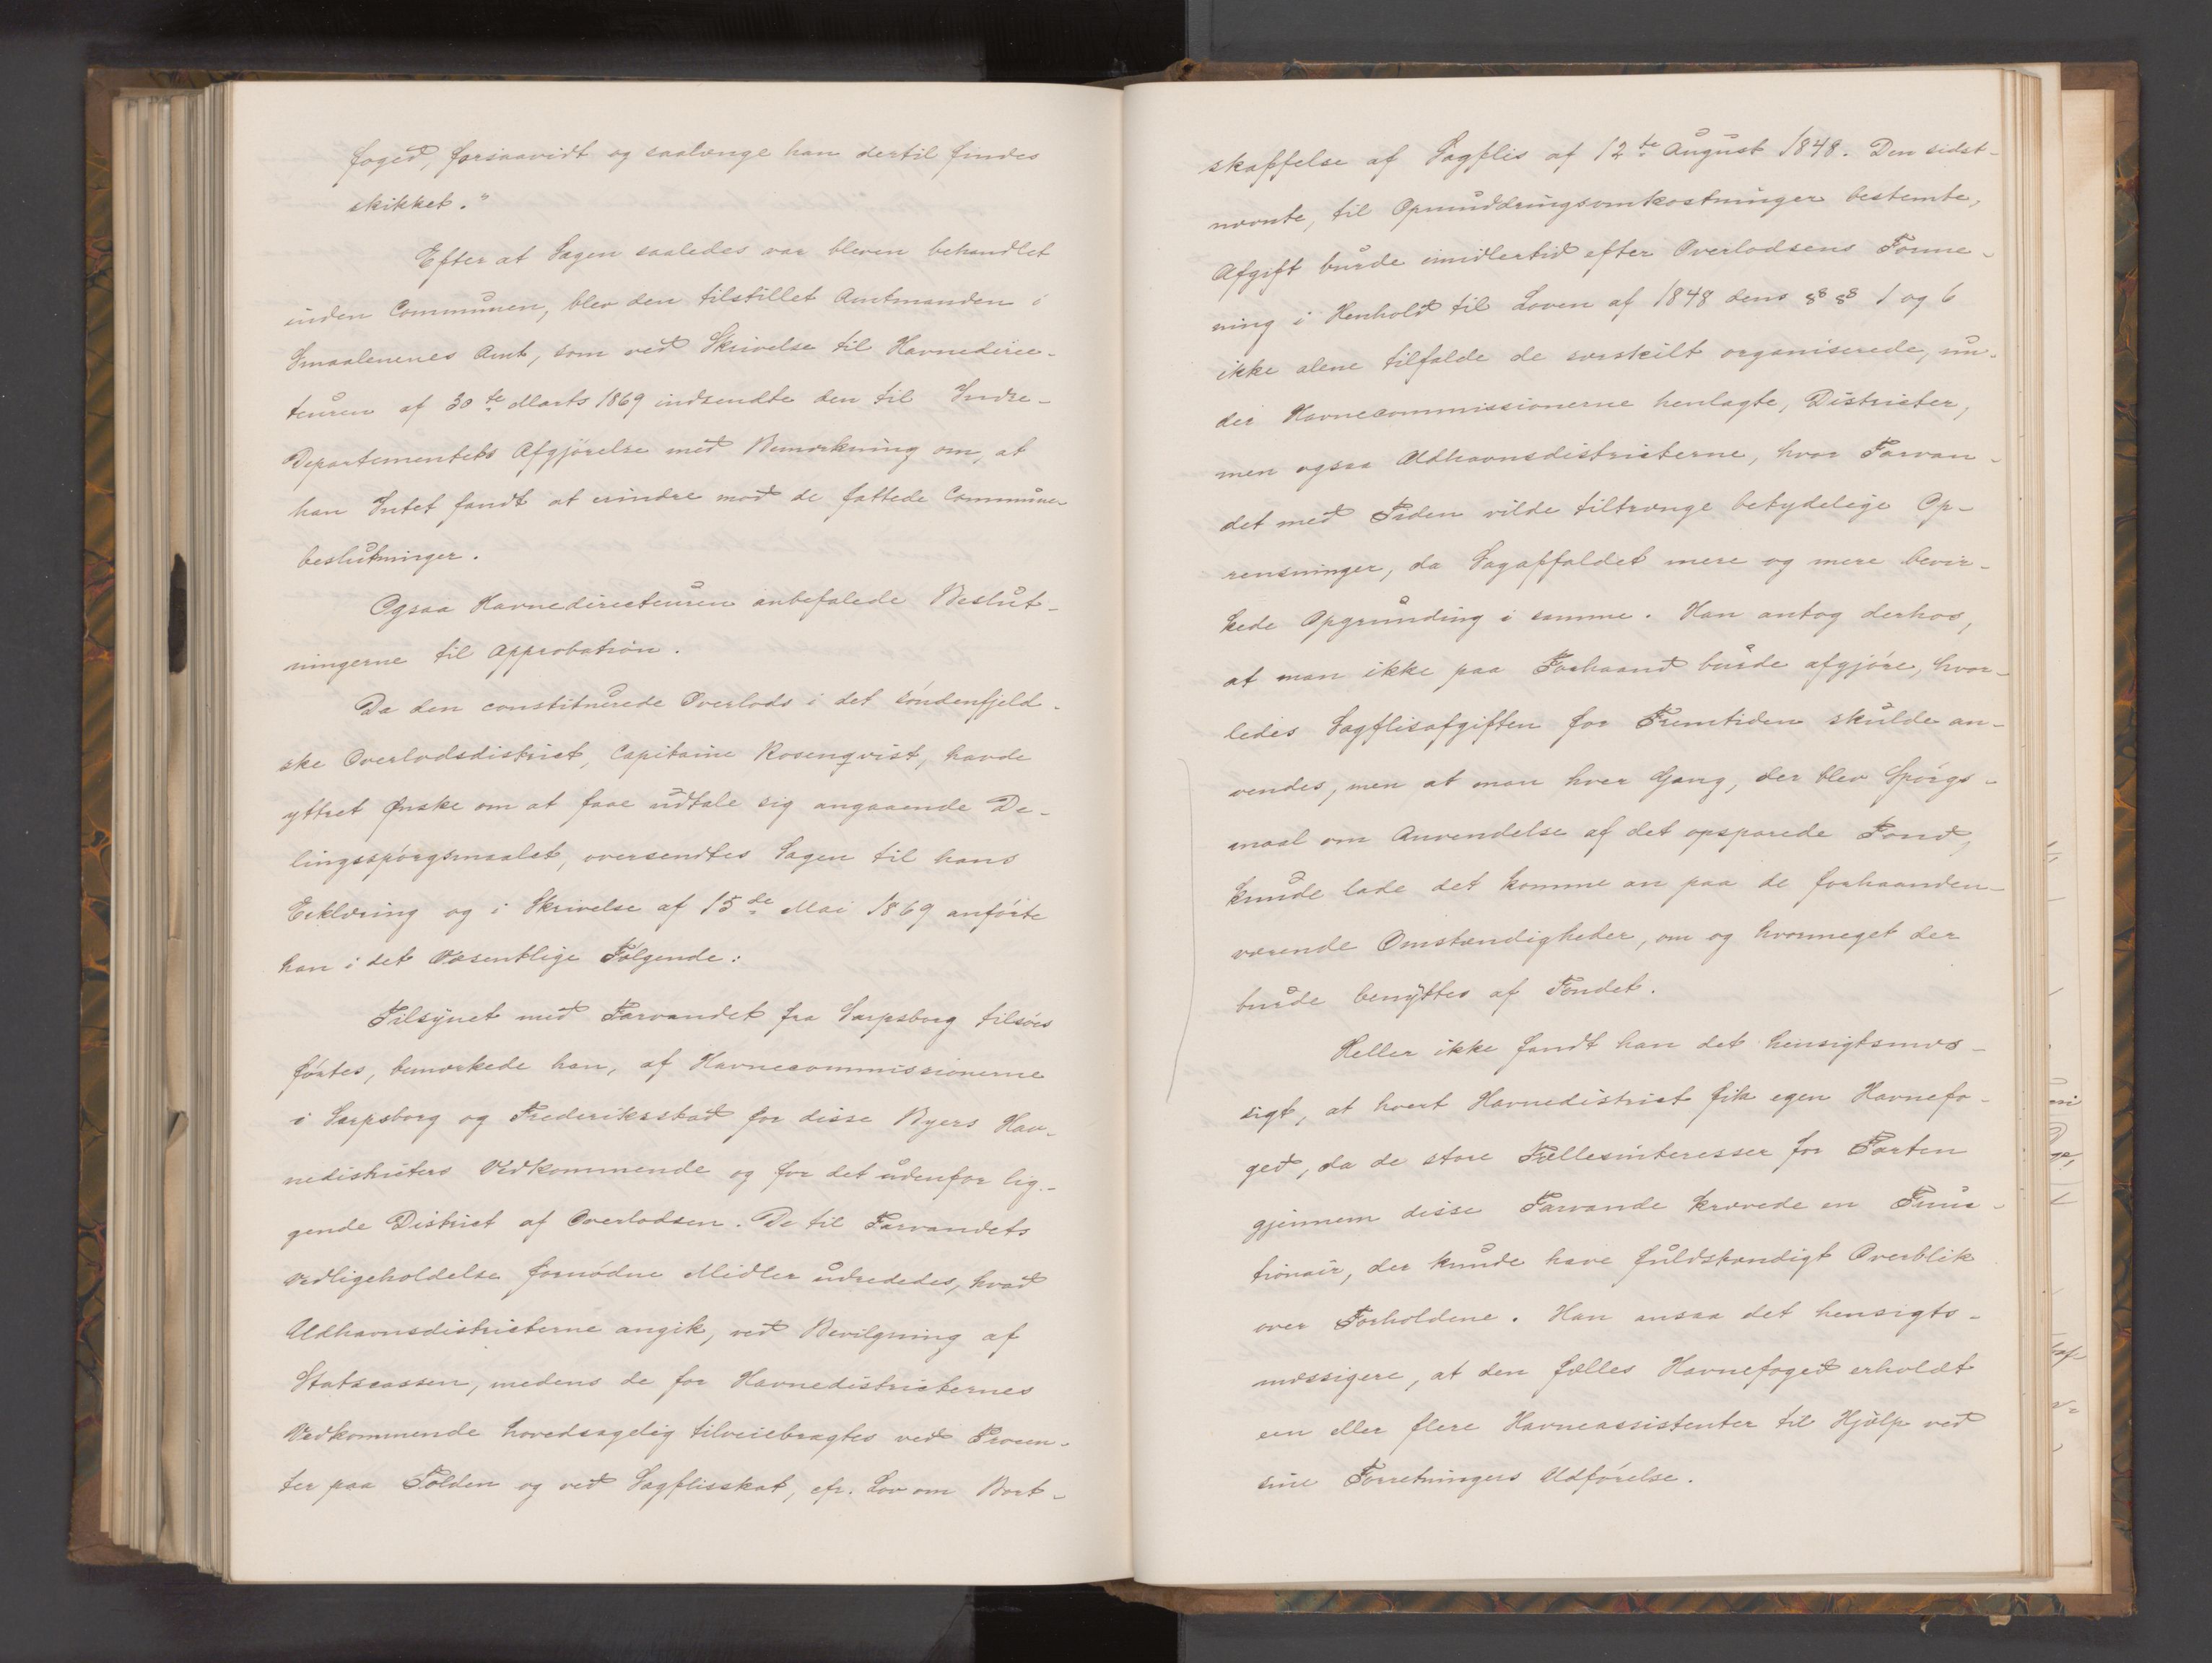 foged, forsaavidt og saalænge han dertil findes
skikket."
Efter at Sagen saaledes var bleven behandlet
inden Communen, blev den tilstillet Amtmanden i
Smaalenenes Amt, som ved Skrivelse til Havnedirec-
teuren af 30te Marts 1869 indsendte den til Indre-
Departementets Afgjørelse med Bemærkning om, at
han Intet fandt at erindre mod de fattede Commune-
beslutninger.
Ogsaa Havnedirecteuren anbefalede Beslut-
ningerne til Approbation.
Da den constituerede Overlods i det søndenfjeld-
ske Overlodsdistrict, Capitaine Rosenqvist, havde
yttret Ønske om at faae udtale sig angaaende De-
lingsspørgsmaalet, oversendtes Sagen til hans
Erklæring og i Skrivelse af 15de Mai 1869 anførte
han i det Væsentlige Følgende:
Tilsynet med Farvandet fra Sarpsborg tilsøes
førtes, bemærkede han, af Havnecommissionerne
i Sarpsborg og Frederiksstad for disse Byers Hav-
nedistricters Vedkommende og for det udenfor lig-
gende District af Overlodsen. De til Farvandets
Vedligeholdelse fornødne Midler udrededes, hvad
Udhavnsdistricterne angik, ved Bevilgning af
Statscassen, medens de for Havnedistricternes
Vedkommende hovedsagelig tilveiebragtes ved Procen-
ter paa Tolden og ved Sagflisskat, cfr. Lov om Bort-
skaffelse af Sagflis af 12te August 1848. Den sidst-
nævnte, til Opmuddringsomkostninger bestemte,
Afgift burde imidlertid efter Overlodsens Forme-
ning i Henhold til Loven af 1848 dens §§ 1 og 6
ikke alene tilfalde de særskilt organiserede, un-
der Havnecommissionerne henlagte, Districter,
men ogsaa Udhavnsdistricterne, hvor Farvan-
det med Tiden vilde tiltrænge betydelige Op-
rensninger, da Sagaffaldet mere og mere bevir-
kede Opgrunding i samme. Han antog derhos,
at man ikke paa Forhaand burde afgjøre, hvor-
ledes Sagflisafgiften for Fremtiden skulde an-
vendes, men at man hver Gang, der blev Spørgs-
maal om Anvendelse af det opsparede Fond,
kunde lade det komme an paa de forhaanden-
værende Omstændigheder, om og hvormeget der
burde benyttes af Fondet.
Heller ikke fandt han det hensigtsmæs-
sigt, at hvert Havnedistrict fik egen Havnefo-
ged, da de store Fællesinteresser for Farten
gjennem disse Farvande krævede en Func-
tionair, der kunde have fuldstændigt Overblik
over Forholdene. Han ansaa det hensigts-
mæssigere, at den fælles Havnefoged erholdt
een eller flere Havneassistenter til Hjælp ved
sine Forretningers Udførelse.